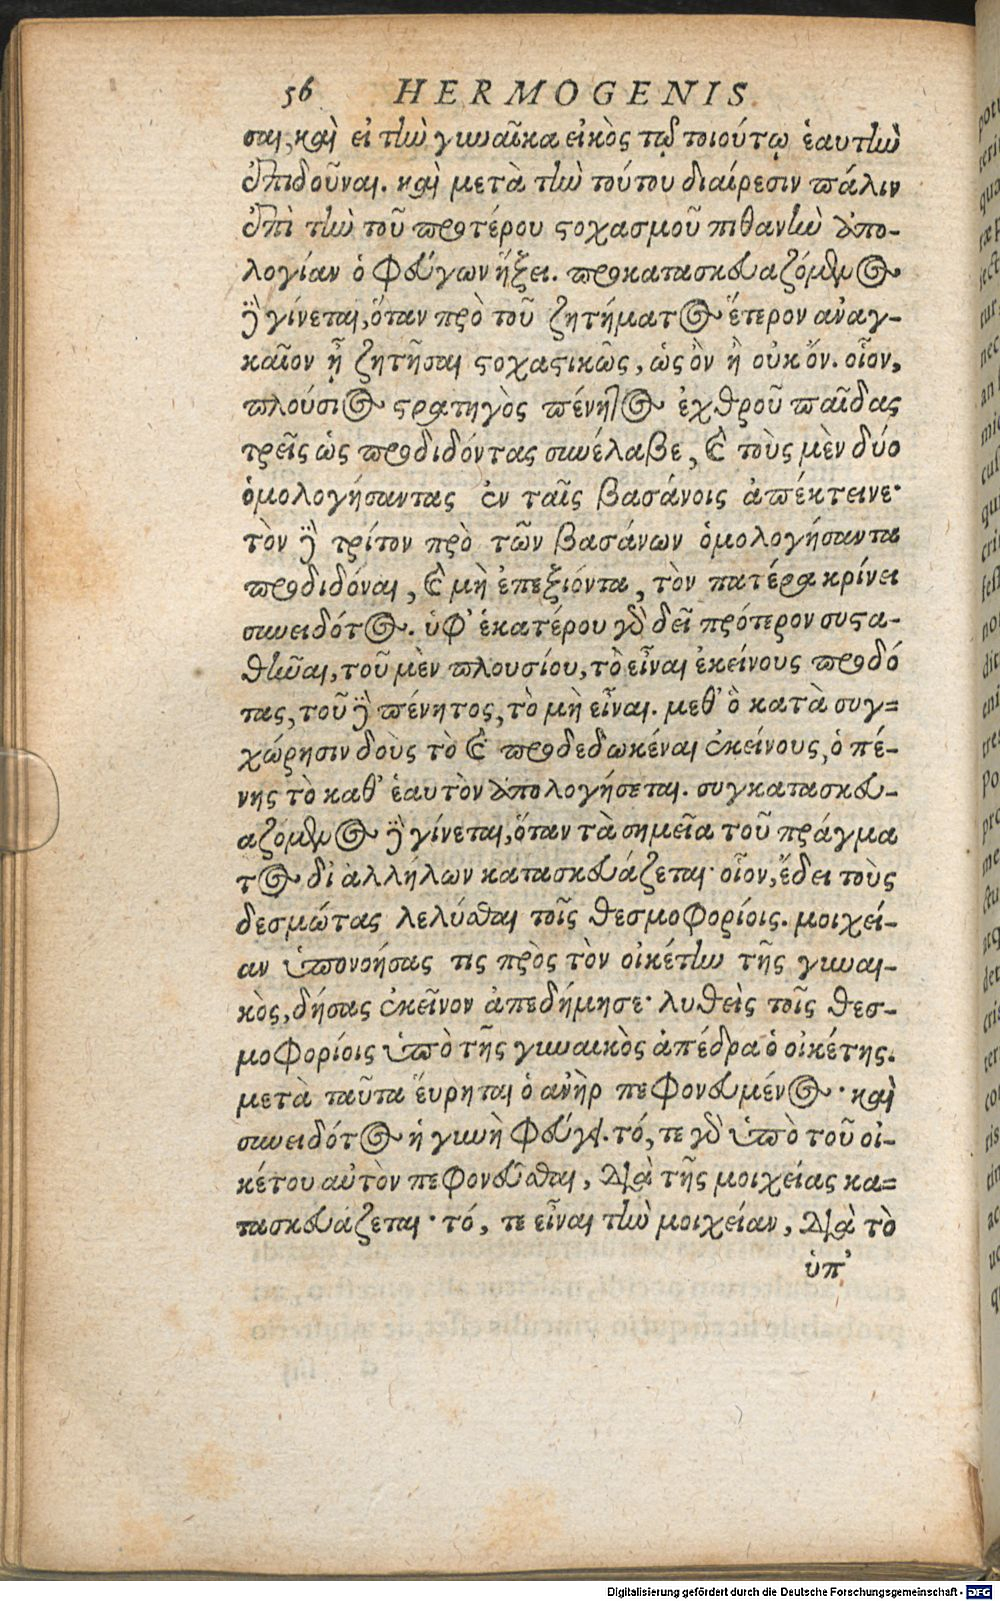 56 HERMOGENIS
σαι, καὶ εἰ τὴν γυναῖκα εἰκὸς τῷ τοιούτῳ ἑαυτὴν
ἐπιδοῦναι. καὶ μετὰ τὴν τούτου διαίρεσιν πάλιν
ἐπὶ τὴν τοῦ προτέρου στοχασμοῦ πιθανὴν ἀπο-
λογίαν ὁ φεύγων ἥξει. προκατασκευαζόμενος
δὲ γίνεται, ὅταν πρὸ τοῦ ζητήματος ἕτερον ἀναγ-
καῖον ᾖ ζητῆσαι στοχαστικῶς, ὡς ὂν ἢ οὐκ ὄν. οἷον,
πλούσιος στρατηγὸς πένητος ἐχθροῦ παῖδας
τρεῖς ὡς προδιδόντας συνέλαβε, καὶ τοὺς μὲν δύο
ὁμολογήσαντας ἐν ταῖς βασάνοις ἀπέκτεινε·
τὸν δὲ τρίτον πρὸ τῶν βασάνων ὁμολογήσαντα
προδιδόναι, καὶ μὴ ἐπεξιόντα, τὸν πατέρα κρίνει
συνειδότος. ὑφ' ἑκατέρου γὰρ δεῖ πρότερον συστα-
θῆναι, τοῦ μὲν πλουσίου, τὸ εἶναι ἐκείνους προδό
τας, τοῦ δὲ πένητος, τὸ μὴ εἶναι. μεθ' ὃ κατὰ συγ=
χώρησιν δοὺς τὸ καὶ προδεδωκέναι ἐκείνους, ὁ πέ-
νης τὸ καθ' ἑαυτὸν ἀπολογήσεται. συγκατασκευ-
αζόμενος δὲ γίνεται, ὅταν τὰ σημεῖα τοῦ πράγμα
τος δι' ἀλλήλων κατασκευάζεται· οἷον, ἔδει τοὺς
δεσμώτας λελύσθαι τοῖς θεσμοφορίοις. μοιχεί-
αν ὑπονοήσας τις πρὸς τὸν οἰκέτην τῆς γυναι-
κὸς, δήσας ἐκεῖνον ἀπεδήμησε· λυθεὶς τοῖς θεσ-
μοφορίοις ὑπὸ τῆς γυναικὸς ἀπέδρα ὁ οἰκέτης.
μετὰ ταῦτα ἕυρηται ὁ ἀνὴρ πεφονευμένος· καὶ
συνειδότος ἡ γυνὴ φεύγει. τό, τε γὰρ ὑπὸ τοῦ οἰ-
κέτου αὐτὸν πεφονεῦσθαι, διὰ τῆς μοιχείας κα=
τασκευάζεται· τό, τε εἶναι τὴν μοιχείαν, διὰ τὸ
ὑπ'
Digitalisierung gefördert durch die Deutsche Forschungsgemeinschaft - DFG